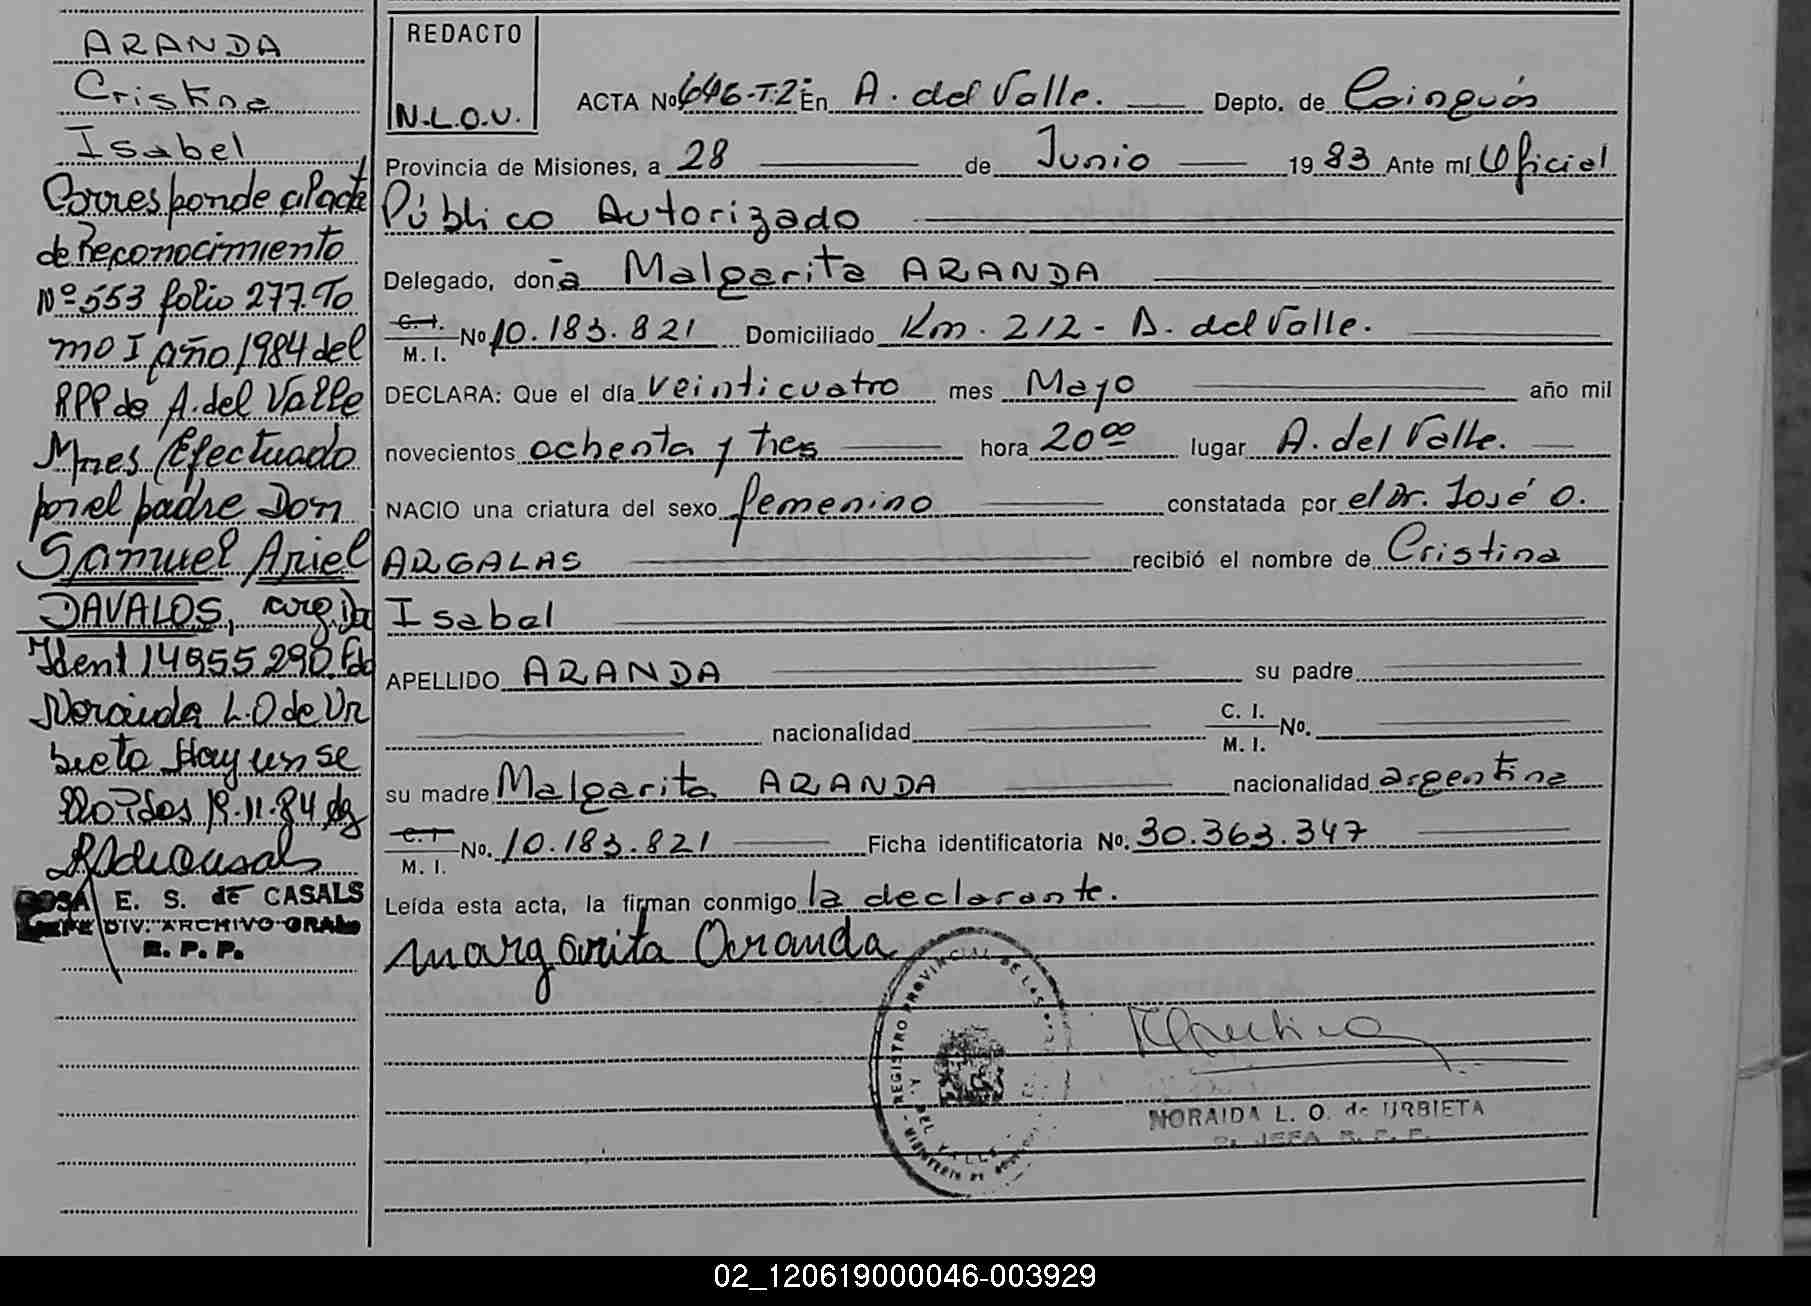 ARANDA
Cristina
Isabel
Corresponde al acta
de Reconocimiento
Nº 553 folio 277. To
mo I año 1984 del
RPP de A. del Valle
Mnes/Efectuado
por el padre Don
Samuel Ariel
DAVALOS, arg. Do
Ident 14955290. Fdo
Noraida L.O de Ur
bieta Hay un se
llo Pdos 19.11.84
ROSA E. S. de CASALS
JEFE DIV. ARCHIVO GRAL
R. P. P.
REDACTO
N.L.O.U.
ACTA Nº 646-T.2º En A. del Valle. Depto. de Cainguás
Provincia de Misiones, a 28 de Junio 1983 Ante mí Oficial
Público Autorizado
Delegado, doña Malgarita ARANDA
C. I.
M. I. Nº 10.183.821 Domiciliado Km. 212 - A. del Valle.
DECLARA: Que el día veinticuatro mes Mayo año mil
novecientos ochenta y tres hora 20 00 lugar A. del Valle.
NACIO una criatura del sexo femenino constatada por el Dr. José O.
ARGALAS recibió el nombre de Cristina
Isabel
APELLIDO ARANDA su padre
nacionalidad C. I. M. I. No.
su madre Malgarita ARANDA nacionalidad argentina
C. I.
M. I. No. 10.183.821 Ficha identificatoria No. 30.363.347
Leída esta acta, la firman conmigo la declarante.
Margarita Aranda
REGISTRO PROVINCIAL DE LAS
A. DEL VALLE
MINISTERIO DE
NORAIDA L. O. de URBIETA
JEFA R. P. P.
02_120619000046-003929